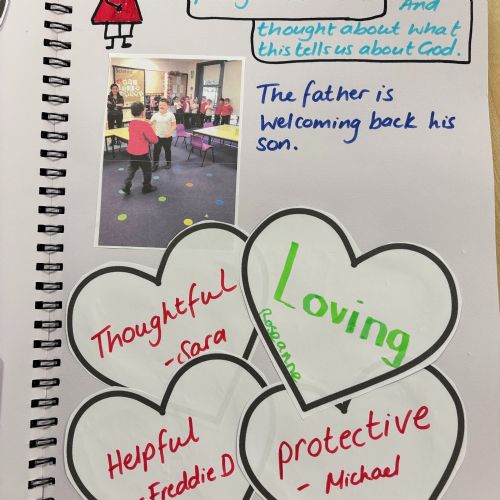 And
thought about what
this tells us about God.
The father is
welcoming back his
son.
Thoughtful
- Sara
Loving
Roseanne
Helpful
- Freddie D
protective
- Michael